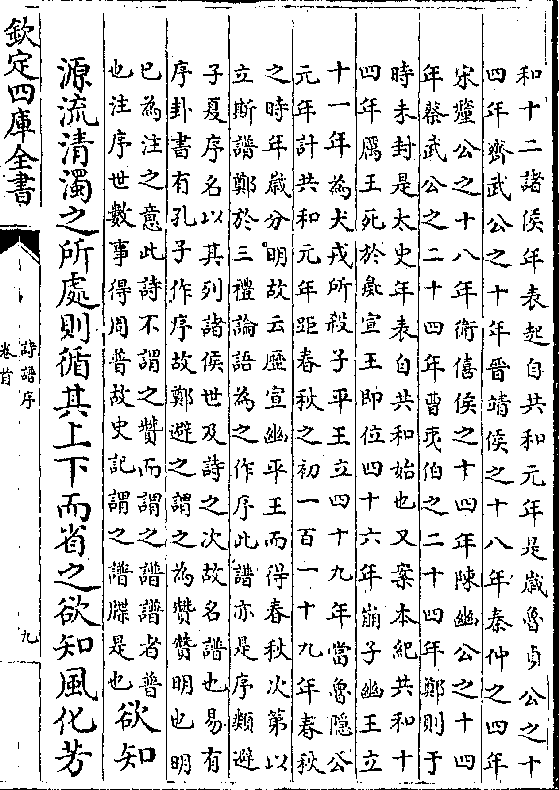 和十二諸侯年表起自共和元年是歲魯貞公之十
四年齊武公之十年晉靖侯之十八年秦仲之四年
宋釐公之十八年衛僖侯之十四年陳幽公之十四
年蔡武公之二十四年曹夷伯之二十四年鄭則于
時未封是太史年表自共和始也又案本紀共和十
四年厲王死於彘宣王即位四十六年崩子幽王立
十一年為犬戎所殺子平王立四十九年當魯隱公
元年計共和元年距春秋之初一百一十九年春秋
之時年歲分明故云歷宣幽平王而得春秋次第以
立斯譜鄭於三禮論語為之作序此譜亦是序類避
子夏序名以其列諸侯世及詩之次故名譜也易有
序卦書有孔子作序故鄭避之謂之為贊贊明也明
已為注之意此詩不謂之贊而謂之譜譜者普
也注序世數事得周普故史記謂之譜牒是也欲知
源流清濁之所處則循其上下而省之欲知風化芳
欽定四庫全書
詩譜序
卷首
九